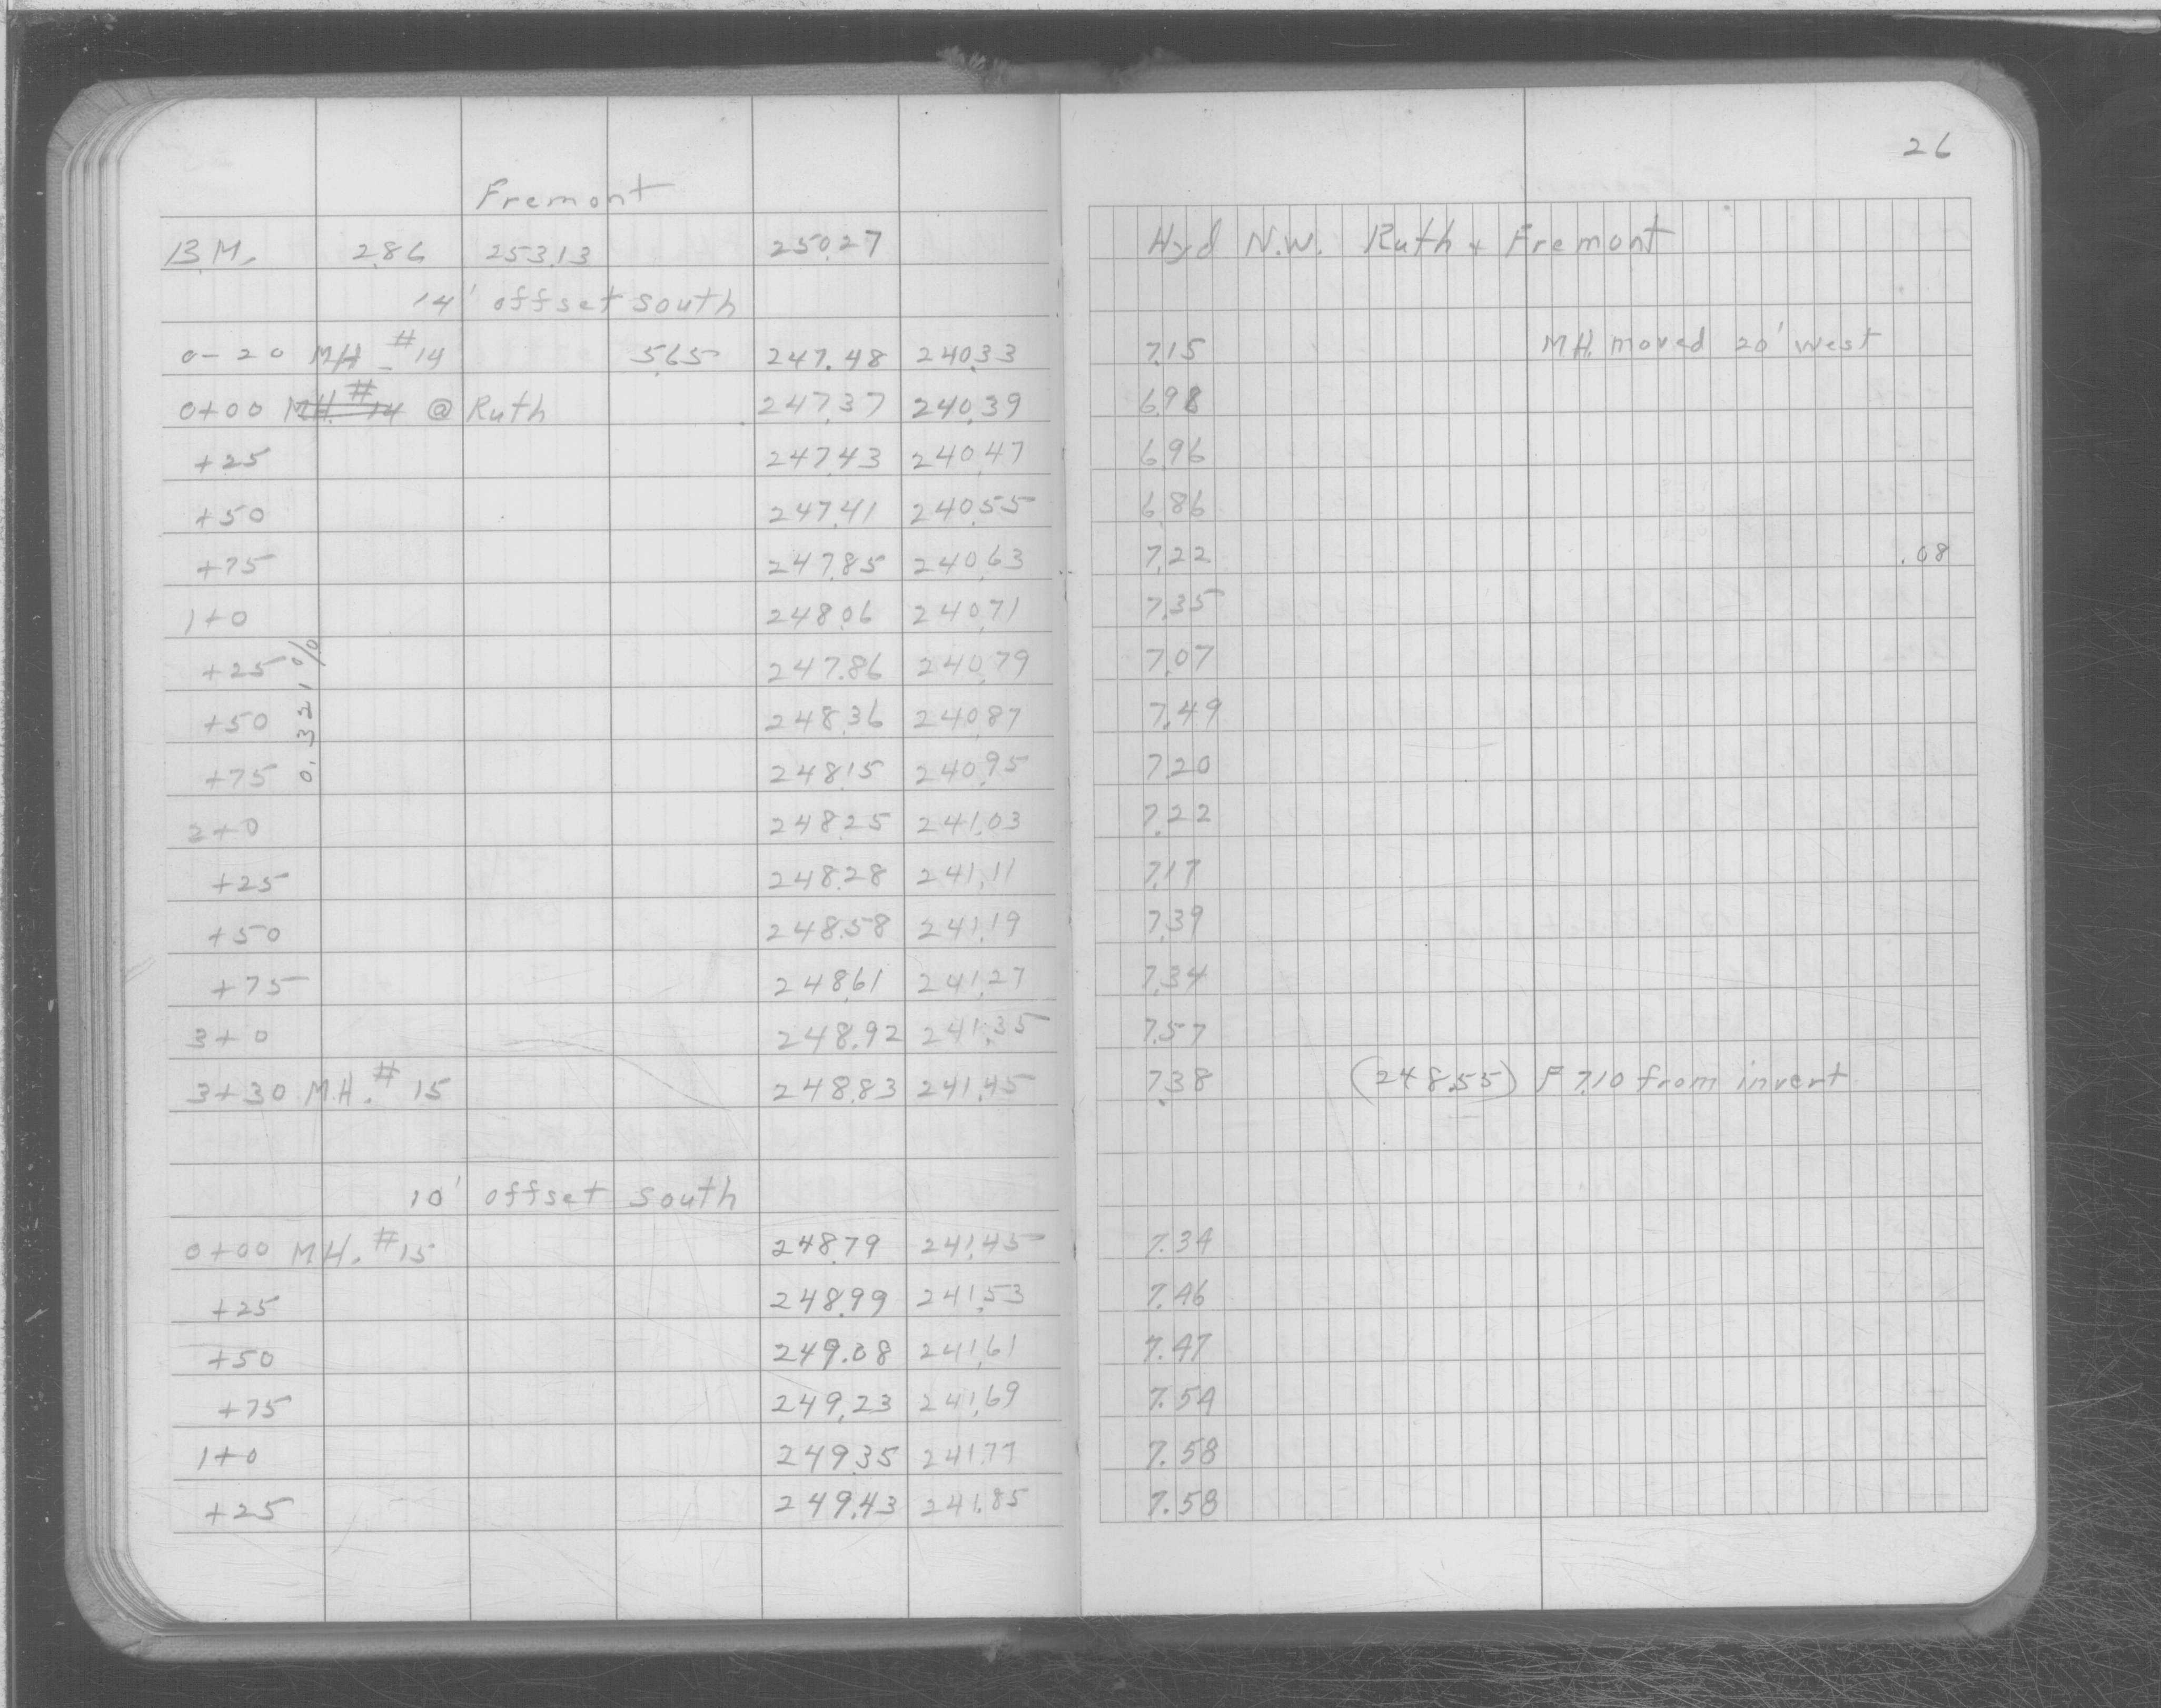 26
Fremont
B.M. 2.86 253.13 250.27 Hyd N.W. Ruth + Fremont
14' offset south
0-20 MH. #14 5.65 247.48 240.33 7.15 MH. moved 20' west
0+00 MH. #14 @ Ruth 247.37 240.39 6.98
+25 247.43 240.47 6.96
+50 247.41 240.55 6.86
+75 247.85 240.63 7.22 .08
1+0 248.06 240.71 7.35
+25 247.86 240.79 7.07
0.321%
+50 248.36 240.87 7.49
+75 248.15 240.95 7.20
2+0 248.25 241.03 7.22
+25 248.28 241.11 7.17
+50 248.58 241.19 7.39
+75 248.61 241.27 7.34
3+0 248.92 241.35 7.57
3+30 M.H. #15 248.83 241.45 7.38 (248.55) F 7.10 from invert
10' offset south
0+00 MH. #15 248.79 241.45 7.34
+25 248.99 241.53 7.46
+50 249.08 241.61 7.47
+75 249.23 241.69 7.54
1+0 249.35 241.77 7.58
+25 249.43 241.85 7.58